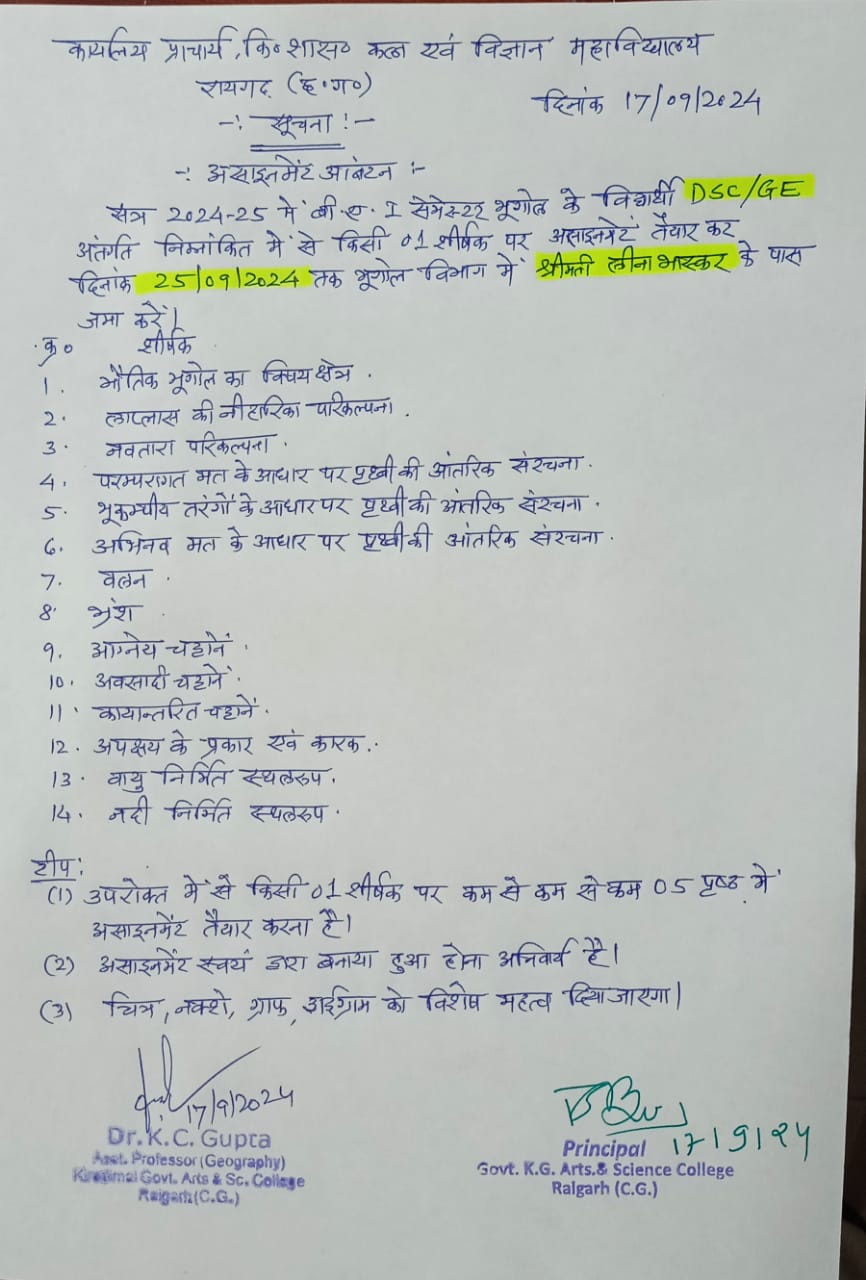 कार्यालय प्राचार्य, कि० शास० कला एवं विज्ञान महाविद्यालय
रायगढ़ (छ.ग०)
दिनांक 17/09/2024
-: सूचना :-
-: असाइनमेंट आबंटन :-
सत्र 2024-25 में बी.ए. I सेमेस्टर भूगोल के विद्यार्थी DSC/GE
अंतर्गत निम्नांकित में से किसी 01 शीर्षक पर असाइनमेंट तैयार कर
दिनांक 25/09/2024 तक भूगोल विभाग में श्रीमती लीना भास्कर के पास
जमा करें।
क्र० शीर्षक
1. भौतिक भूगोल का विषय क्षेत्र.
2. लाप्लास की नीहारिका परिकल्पना.
3. नवतारा परिकल्पना.
4. परम्परागत मत के आधार पर पृथ्वी की आंतरिक संरचना.
5. भूकम्पीय तरंगों के आधार पर पृथ्वी की आंतरिक संरचना.
6. अभिनव मत के आधार पर पृथ्वी की आंतरिक संरचना.
7. वलन.
8. भ्रंश.
9. आग्नेय चट्टानें.
10. अवसादी चट्टानें.
11. कायान्तरित चट्टानें.
12. अपक्षय के प्रकार एवं कारक.
13. वायु निर्मित स्थलरूप.
14. नदी निर्मित स्थलरूप.
टीप:
(1) उपरोक्त में से किसी 01 शीर्षक पर कम से कम से कम 05 पृष्ठ में
असाइनमेंट तैयार करना है।
(2) असाइनमेंट स्वयं द्वारा बनाया हुआ होना अनिवार्य है।
(3) चित्र, नक्शे, ग्राफ, डाईग्राम को विशेष महत्व दिया जाएगा।
17/9/2024
Dr. K.C. Gupta
Asst. Professor (Geography)
Kirodimal Govt. Arts & Sc. College
Raigarh (C.G.)
17/9/24
Principal
Govt. K.G. Arts.& Science College
Raigarh (C.G.)